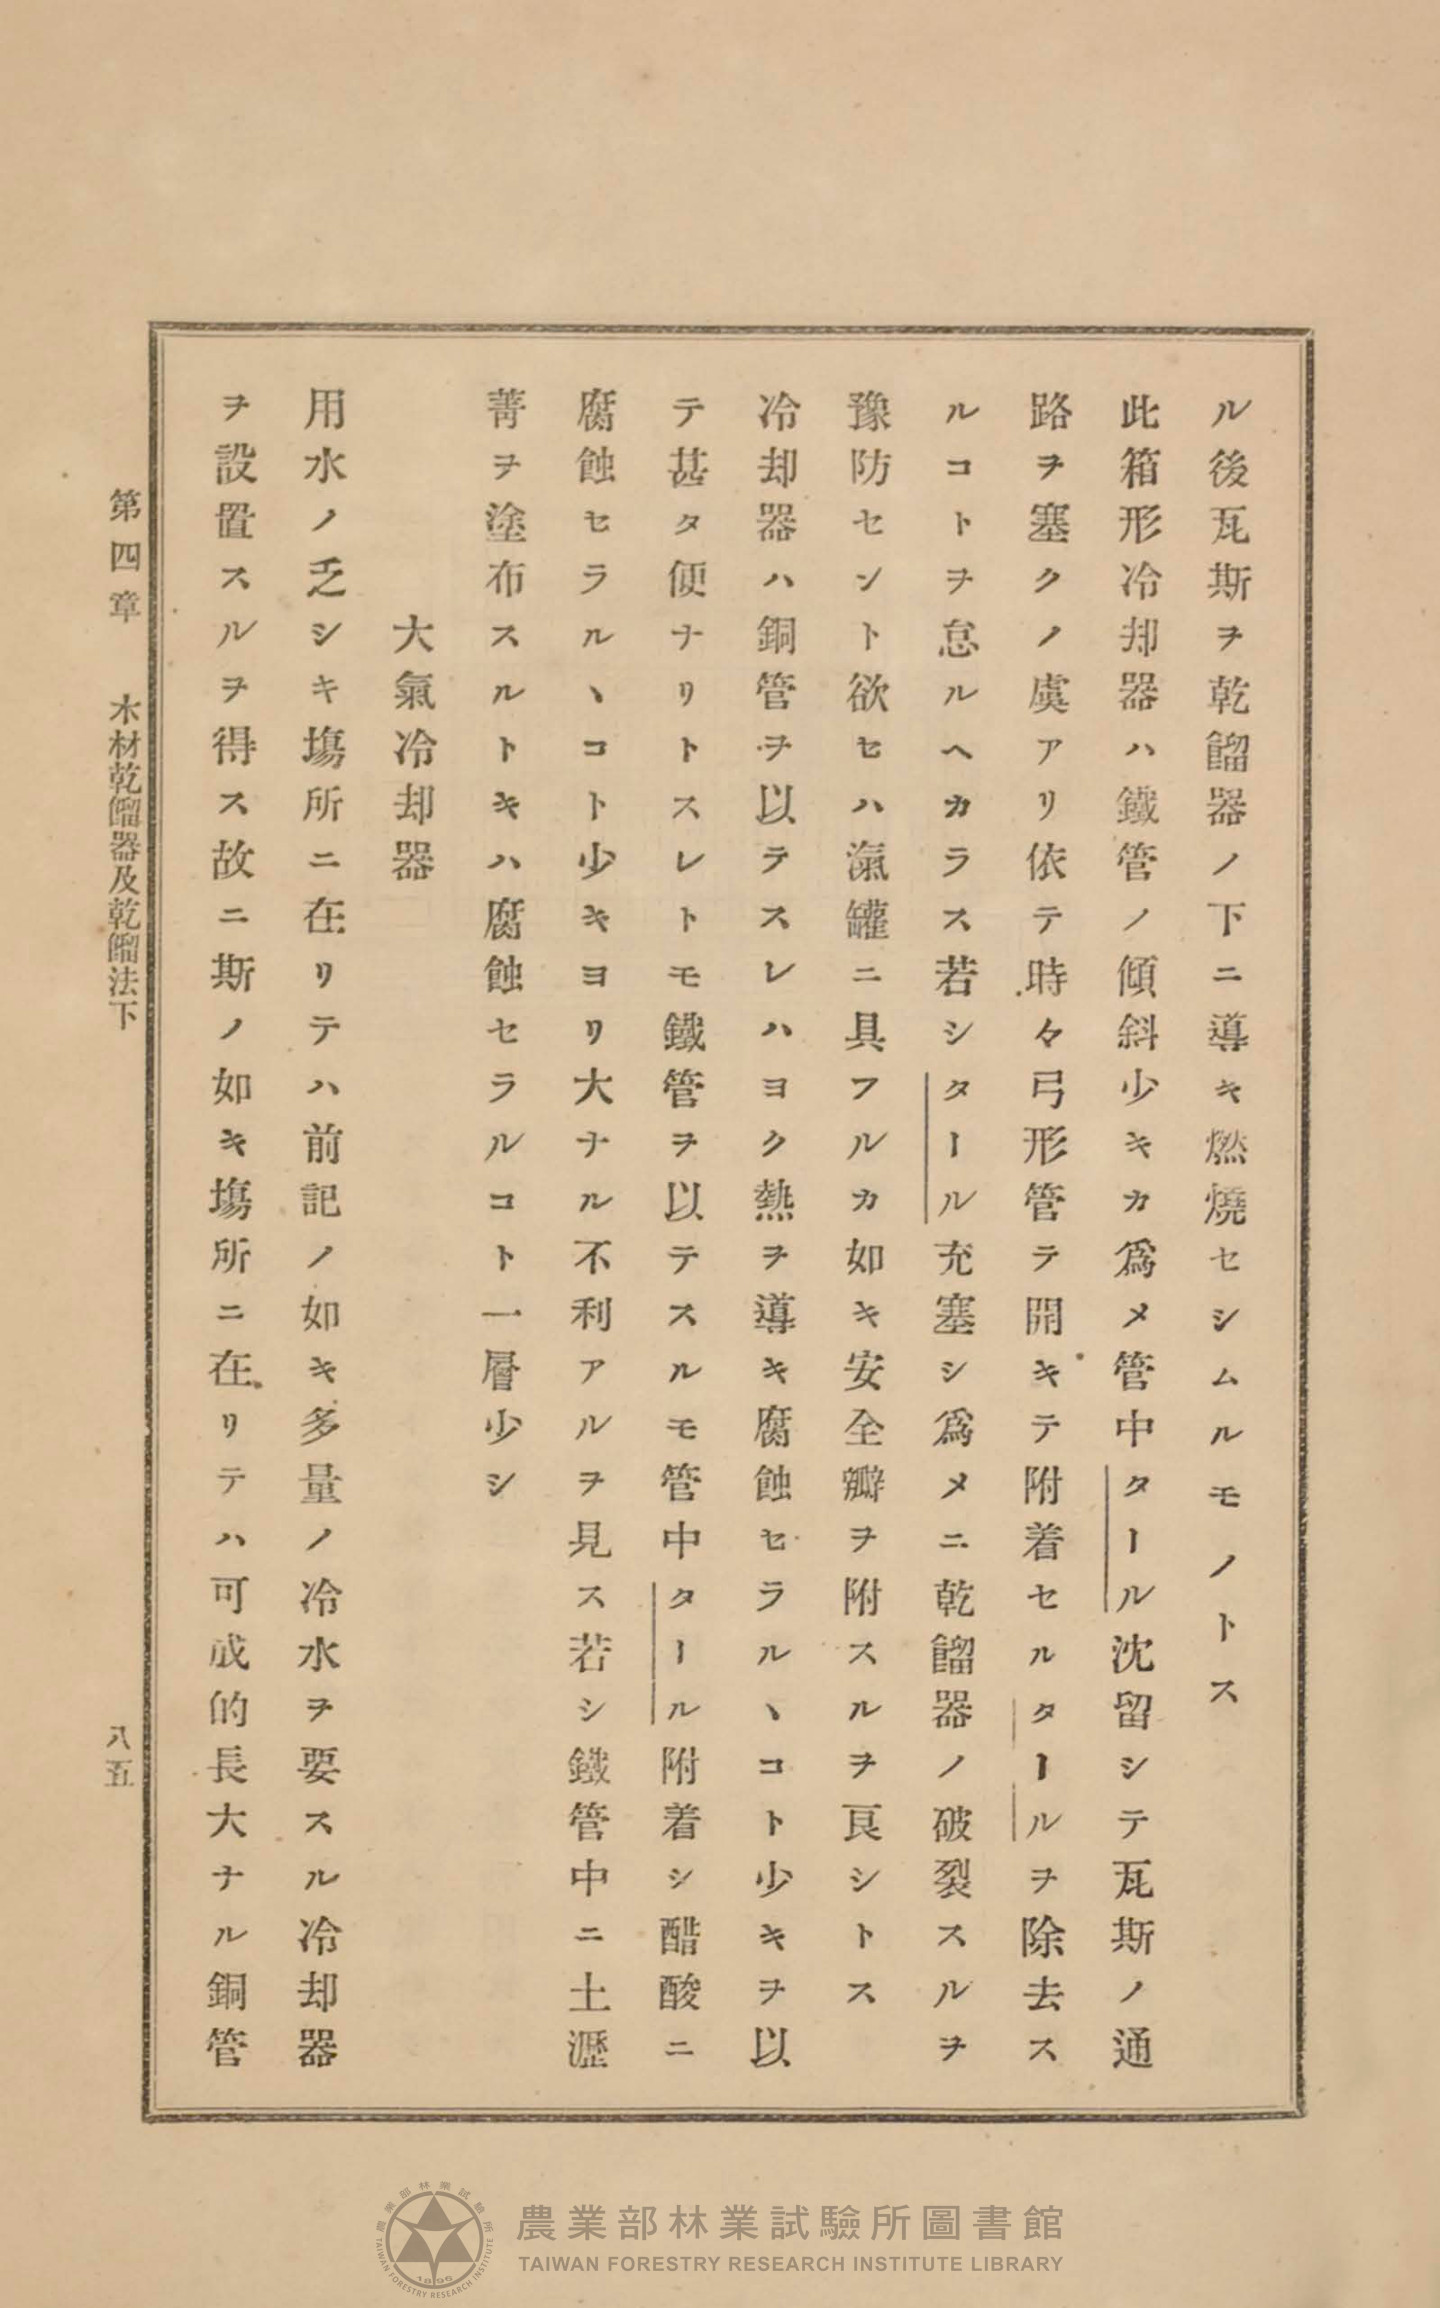 ル後瓦斯ヲ乾餾器ノ下ニ導キ燃燒セシムルモノトス
此箱形冷却器ハ鐵管ノ傾斜少キカ爲メ管中タール沈留シテ瓦斯ノ通
路ヲ塞クノ虞アリ依テ時々弓形管テ開キテ附着セルタールヲ除去ス
ルコトヲ怠ルヘカラス若シタール充塞シ爲メニ乾餾器ノ破裂スルヲ
豫防セント欲セハ滊罐ニ具フルカ如キ安全瓣ヲ附スルヲ良シトス
冷却器ハ銅管ヲ以テスレハヨク熱ヲ導キ腐蝕セラルヽコト少キヲ以
テ甚タ便ナリトスレトモ鐵管ヲ以テスルモ管中タール附着シ醋酸ニ
腐蝕セラルヽコト少キヨリ大ナル不利アルヲ見ス若シ鐵管中ニ土瀝
菁ヲ塗布スルトキハ腐蝕セラルコト一層少シ
大氣冷却器
用水ノ乏シキ塲所ニ在リテハ前記ノ如キ多量ノ冷水ヲ要スル冷却器
ヲ設置スルヲ得ス故ニ斯ノ如キ塲所ニ在リテハ可成的長大ナル銅管
第四章 木材乾餾器及乾餾法下
八五
農業部林業試驗所圖書館
TAIWAN FORESTRY RESEARCH INSTITUTE LIBRARY
農業部林業試驗所
TAIWAN FORESTRY RESEARCH INSTITUTE
1896